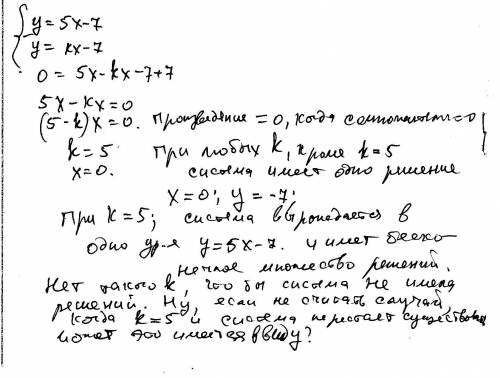 y = 5x-7
y = kx-7
0 = 5x-kx-7+7
5x-kx=0
(5-k)x=0. Произведение =0, когда сомножитель=0
k=5 При любых k, кроме k=5
x=0. система имеет одно решение
x=0; y=-7;
При k=5; система вырождается в
одно ур-е y=5x-7. и имеет беско-
нечное множество решений.
Нет такого k, что бы система не имела
решений. Ну, если не считать случай,
когда k=5 и система перестает существовать
может это имеется ввиду?